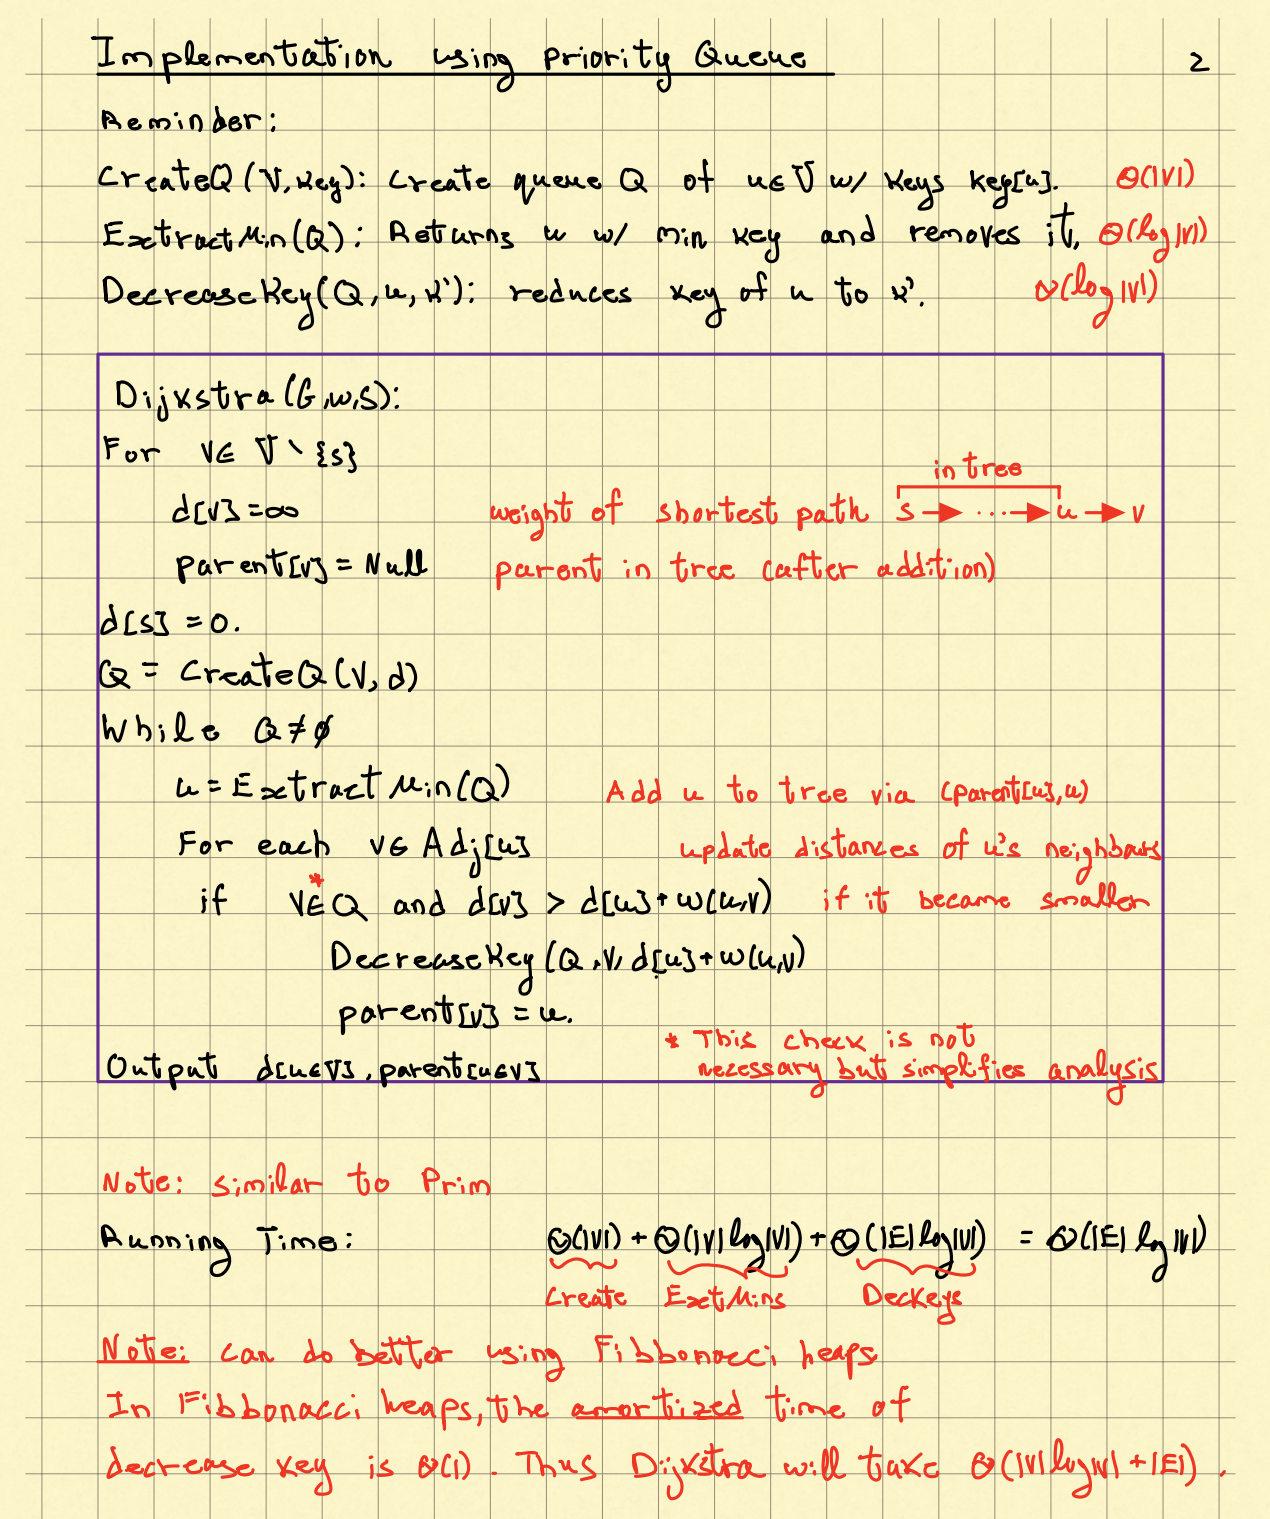 Implementation using Priority Queue 2
Reminder:
CreateQ(V,key): create queue Q of u∈V w/ keys key[u]. Θ(|V|)
ExtractMin(Q): Returns u w/ min key and removes it, Θ(log|V|)
DecreaseKey(Q,u,k'): reduces key of u to k'. Θ(log|V|)
Dijkstra(G,w,s):
For v∈ V \ {s}
in tree
d[v]=∞ weight of shortest path s → ... → u → v
parent[v] = Null parent in tree (after addition)
d[s] = 0.
Q = CreateQ(V, d)
While Q ≠ ∅
u = ExtractMin(Q) Add u to tree via (parent[u],u)
For each v∈ Adj[u] update distances of u's neighbours
if v∈*Q and d[v] > d[u]+w(u,v) if it became smaller
DecreaseKey(Q,v,d[u]+w(u,v)
parent[v] = u.
* This check is not
Output d[u∈V], parent[u∈V] necessary but simplifies analysis
Note: similar to Prim
Running Time: Θ(|V|) + Θ(|V|log|V|) + Θ(|E|log|V|) = Θ(|E| log |V|)
Create ExtMins DecKeys
Note: can do better using Fibbonacci heaps
In Fibbonacci heaps, the amortized time of
decrease key is Θ(1). Thus Dijkstra will take Θ(|V|log|V| + |E|).